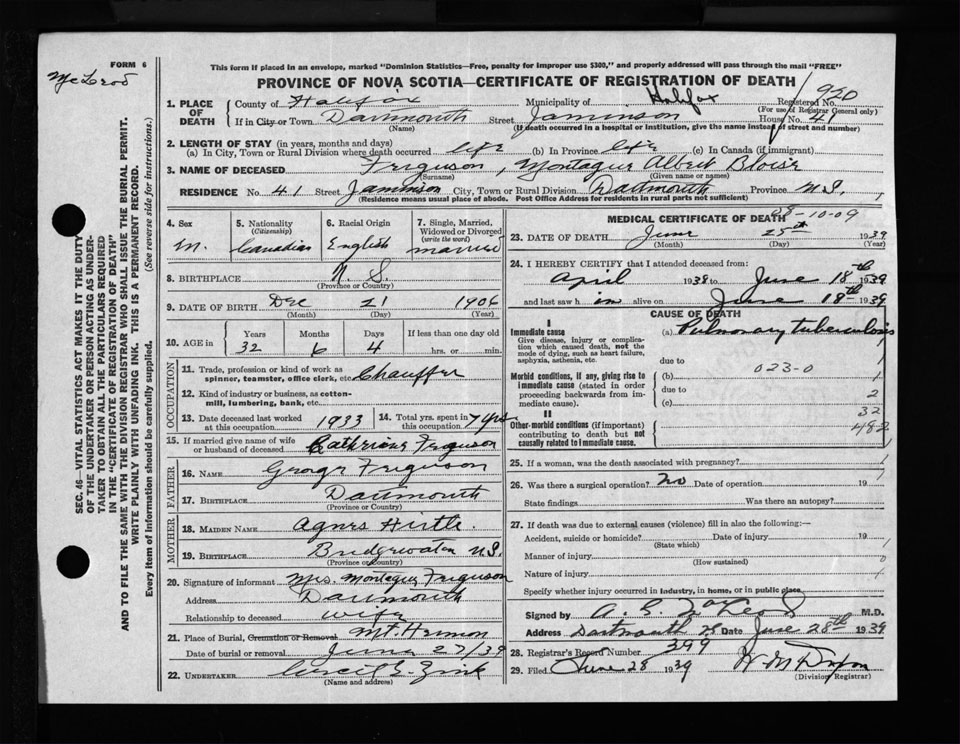 FORM 6
McLeod
This form if placed in an envelope, marked "Dominion Statistics—Free, penalty for improper use $300," and properly addressed will pass through the mail "FREE"
PROVINCE OF NOVA SCOTIA—CERTIFICATE OF REGISTRATION OF DEATH
1. PLACE OF DEATH County of Halifax Municipality of Halifax Registered No. 920
(For use of Registrar General only)
If in City or Town Dartmouth Street Jaminson House No. 41
(Name) (If death occurred in a hospital or institution, give the name instead of street and number)
2. LENGTH OF STAY (in years, months and days)
(a) In City, Town or Rural Division where death occurred life (b) In Province life (c) In Canada (if immigrant)
3. NAME OF DECEASED Ferguson, Montague Albert Bloise
(Surname) (Given name or names)
RESIDENCE No. 41 Street Jaminson City, Town or Rural Division Dartmouth Province N.S.
(Residence means usual place of abode. Post Office Address for residents in rural parts not sufficient)
4. Sex 5. Nationality (Citizenship) 6. Racial Origin 7. Single, Married, Widowed or Divorced (write the word)
M. Canadian English married
8. BIRTHPLACE N. S.
(Province or Country)
9. DATE OF BIRTH Dec 21 1906
(Month) (Day) (Year)
10. AGE in Years Months Days If less than one day old
32 6 4 hrs. or min.
OCCUPATION
11. Trade, profession or kind of work as spinner, teamster, office clerk, etc. Chauffer
12. Kind of industry or business, as cotton-mill, lumbering, bank, etc.
13. Date deceased last worked at this occupation 1933 14. Total yrs. spent in this occupation 7 yrs
15. If married give name of wife or husband of deceased Catherine Ferguson
FATHER
16. NAME George Ferguson
17. BIRTHPLACE Dartmouth
(Province or Country)
MOTHER
18. MAIDEN NAME Agnes Hirtle
19. BIRTHPLACE Bridgewater N.S.
(Province or Country)
20. Signature of informant Mrs. Montague Ferguson
Address Dartmouth
Relationship to deceased wife
21. Place of Burial, Cremation or Removal Mt. Hermon
Date of burial or removal June 27/39
22. UNDERTAKER Zink
(Name and address)
MEDICAL CERTIFICATE OF DEATH 28-10-09
23. DATE OF DEATH June 25th 1939
(Month) (Day) (Year)
24. I HEREBY CERTIFY that I attended deceased from:
April 1938 to June 18th 1939
and last saw him alive on June 18th 1939
CAUSE OF DEATH
I
Immediate cause (a) Pulmonary tuberculosis
Give disease, injury or complication which caused death, not the mode of dying, such as heart failure, asphyxia, asthenia, etc.
due to
Morbid conditions, if any, giving rise to immediate cause (stated in order proceeding backwards from immediate cause). (b) 023-0
due to 2
(c)
II 32
Other-morbid conditions (if important) contributing to death but not causally related to immediate cause. 482
25. If a woman, was the death associated with pregnancy?
26. Was there a surgical operation? no Date of operation 19
State findings Was there an autopsy?
27. If death was due to external causes (violence) fill in also the following:—
Accident, suicide or homicide? Date of injury 19
(State which)
Manner of injury
(How sustained)
Nature of injury
Specify whether injury occurred in industry, in home, or in public place
Signed by A. G. McLeod M.D.
Address Dartmouth NS Date June 28th 1939
28. Registrar's Record Number 399
29. Filed June 28 1939
(Division Registrar)
SEC. 46—VITAL STATISTICS ACT MAKES IT THE DUTY OF THE UNDERTAKER OR PERSON ACTING AS UNDERTAKER TO OBTAIN ALL THE PARTICULARS REQUIRED IN THE "CERTIFICATE OF REGISTRATION OF DEATH" AND TO FILE THE SAME WITH THE DIVISION REGISTRAR WHO SHALL ISSUE THE BURIAL PERMIT.
WRITE PLAINLY WITH UNFADING INK. THIS IS A PERMANENT RECORD.
Every item of information should be carefully supplied. (See reverse side for instructions.)